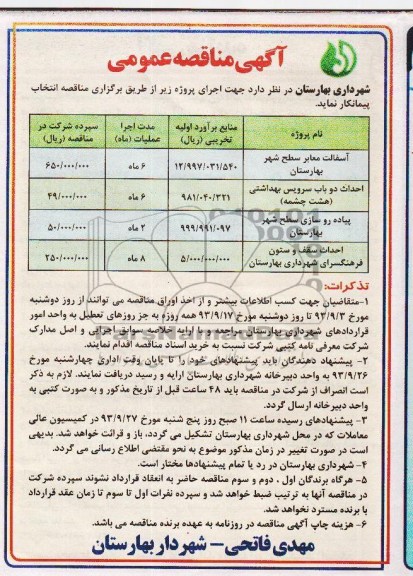 آگهی مناقصه عمومی
شهرداری بهارستان در نظر دارد جهت اجرای پروژه زیر از طریق برگزاری مناقصه انتخاب
پیمانکار نماید.
نام پروژه منابع برآورد اولیه تخریبی (ریال) مدت اجرا عملیات (ماه) سپرده شرکت در مناقصه (ریال)
آسفالت معابر سطح شهر بهارستان ۱۲/۹۹۷/۰۳۱/۵۴۰ ۶ ماه ۶۵۰/۰۰۰/۰۰۰
احداث دو باب سرویس بهداشتی (هشت چشمه) ۹۸۱/۰۴۰/۳۲۱ ۶ ماه ۴۹/۰۰۰/۰۰۰
پیاده رو سازی سطح شهر بهارستان ۹۹۹/۹۹۱/۰۹۷ ۲ ماه ۵۰/۰۰۰/۰۰۰
احداث سقف و ستون فرهنگسرای شهرداری بهارستان ۵/۰۰۰/۰۰۰/۰۰۰ ۸ ماه ۲۵۰/۰۰۰/۰۰۰
تذکرات:
۱-متقاضیان جهت کسب اطلاعات بیشتر و از اخذ اوراق مناقصه می توانند از روز دوشنبه
مورخ ۹۳/۹/۳ تا روز دوشنبه مورخ ۹۳/۹/۱۷ همه روزه به جز روزهای تعطیل به واحد امور
قراردادهای شهرداری بهارستان مراجعه و با ارایه خلاصه سوابق اجرایی و اصل مدارک
شرکت معرفی نامه کتبی شرکت نسبت به خرید اسناد مناقصه اقدام نمایند.
۲- پیشنهاد دهندگان باید پیشنهادهای خود را تا پایان وقت اداری چهارشنبه مورخ
۹۳/۹/۲۶ به واحد دبیرخانه شهرداری بهارستان ارایه و رسید دریافت نمایند. لازم به ذکر
است انصراف از شرکت در مناقصه باید ۴۸ ساعت قبل از تاریخ مذکور و به صورت کتبی به
واحد دبیرخانه ارسال گردد.
۳- پیشنهادهای رسیده ساعت ۱۱ صبح روز پنج شنبه مورخ ۹۳/۹/۲۷ در کمیسیون عالی
معاملات که در محل شهرداری بهارستان تشکیل می گردد، باز و قرائت خواهد شد. بدیهی
است در صورت تغییر در زمان مذکور موضوع به نحو مقتضی اطلاع رسانی می گردد.
۴- شهرداری بهارستان در رد یا تمام پیشنهادها مختار است.
۵- هرگاه برندگان اول ، دوم و سوم مناقصه حاضر به انعقاد قرارداد نشوند سپرده شرکت
در مناقصه آنها به ترتیب ضبط خواهد شد و سپرده نفرات اول تا سوم تا زمان عقد قرارداد
با برنده مسترد نخواهد شد.
۶- هزینه چاپ آگهی مناقصه در روزنامه به عهده برنده مناقصه می باشد.
مهدی فاتحی - شهردار بهارستان